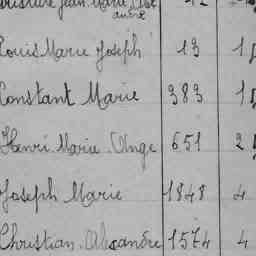 Jean Marie
André
Louis Marie Joseph 13 1
Constant Marie 383 1
Henri Marie Ange 651 2
Joseph Marie 1848 4
Christian Alexandre 1574 4